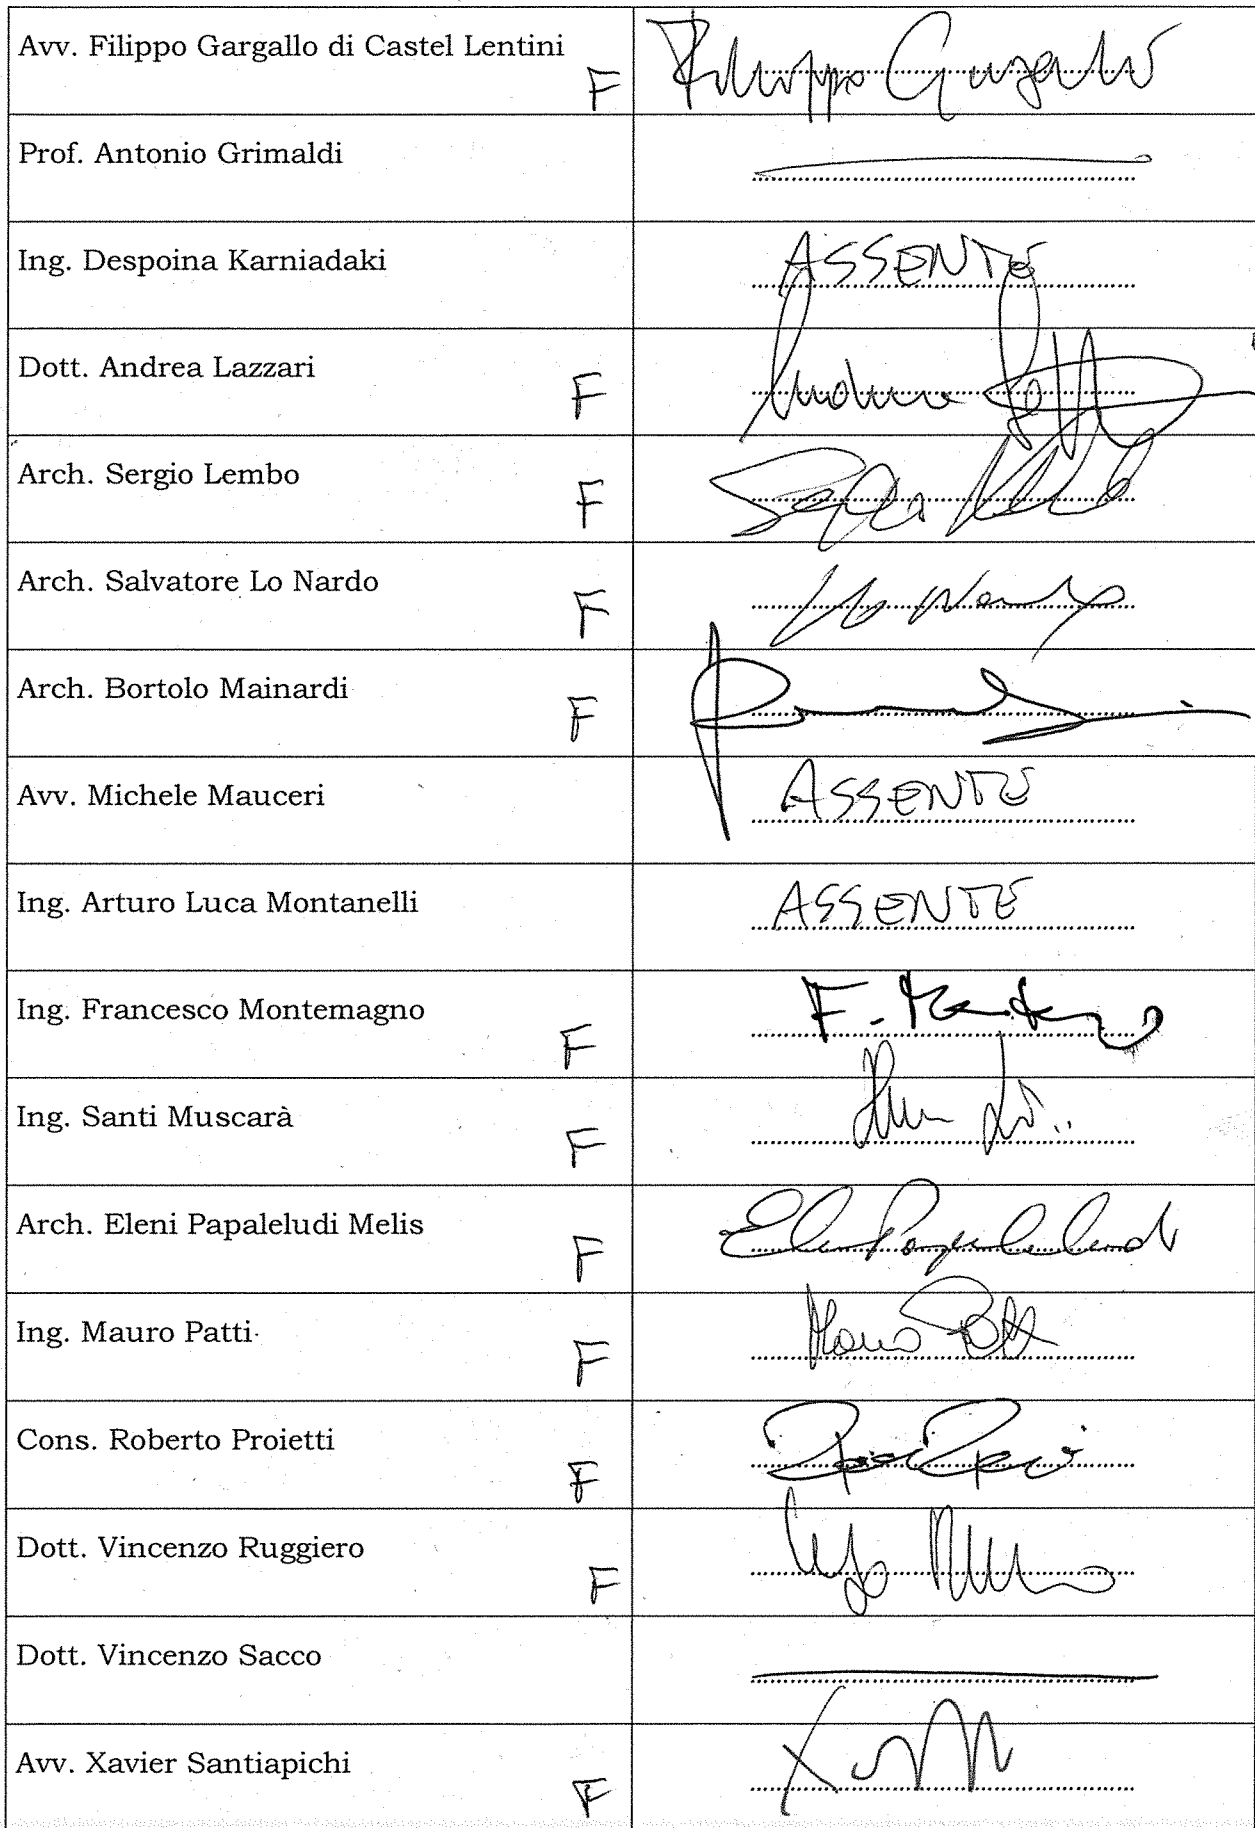 Avv. Filippo Gargallo di Castel Lentini
F Filippo Gargallo
Prof. Antonio Grimaldi
Ing. Despoina Karniadaki
ASSENTE
Dott. Andrea Lazzari
F
Arch. Sergio Lembo
F
Arch. Salvatore Lo Nardo
F Lo Nardo
Arch. Bortolo Mainardi
F
Avv. Michele Mauceri
ASSENTE
Ing. Arturo Luca Montanelli
ASSENTE
Ing. Francesco Montemagno
F F.
Ing. Santi Muscarà
F
Arch. Eleni Papaleludi Melis
F
Ing. Mauro Patti
F Mauro Patti
Cons. Roberto Proietti
F
Dott. Vincenzo Ruggiero
F
Dott. Vincenzo Sacco
Avv. Xavier Santiapichi
F